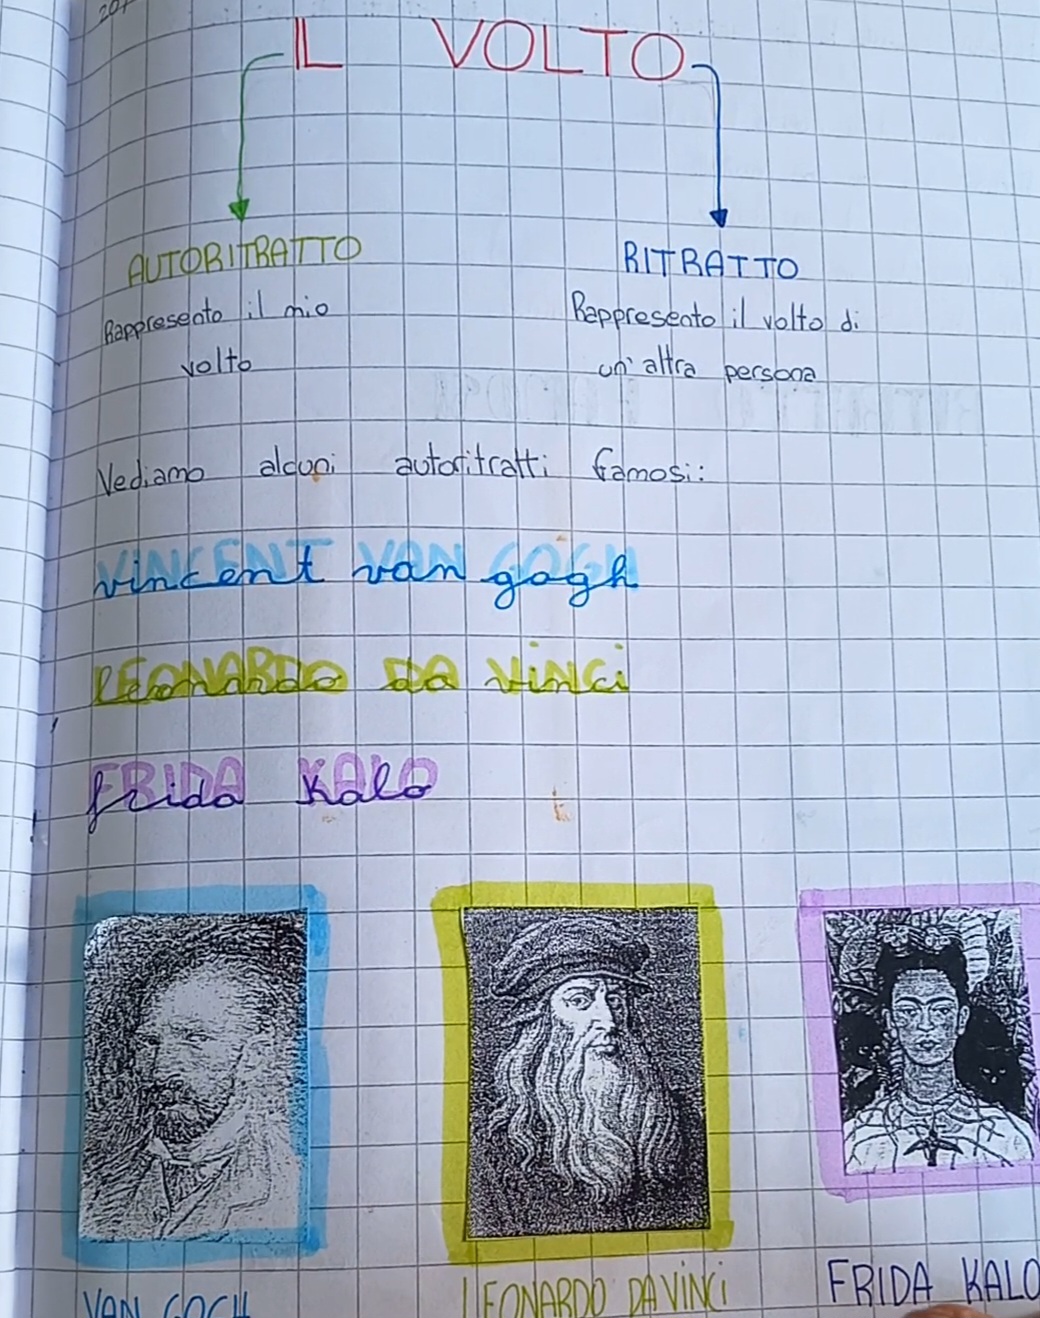 IL VOLTO
AUTORITRATTO
RITRATTO
Rappresento il mio
volto
Rappresento il volto di
un'altra persona
Vediamo alcuni autoritratti famosi:
vincent van gogh
leonardo da vinci
frida Kalo
VAN GOGH
LEONARDO DA VINCI
FRIDA KALO